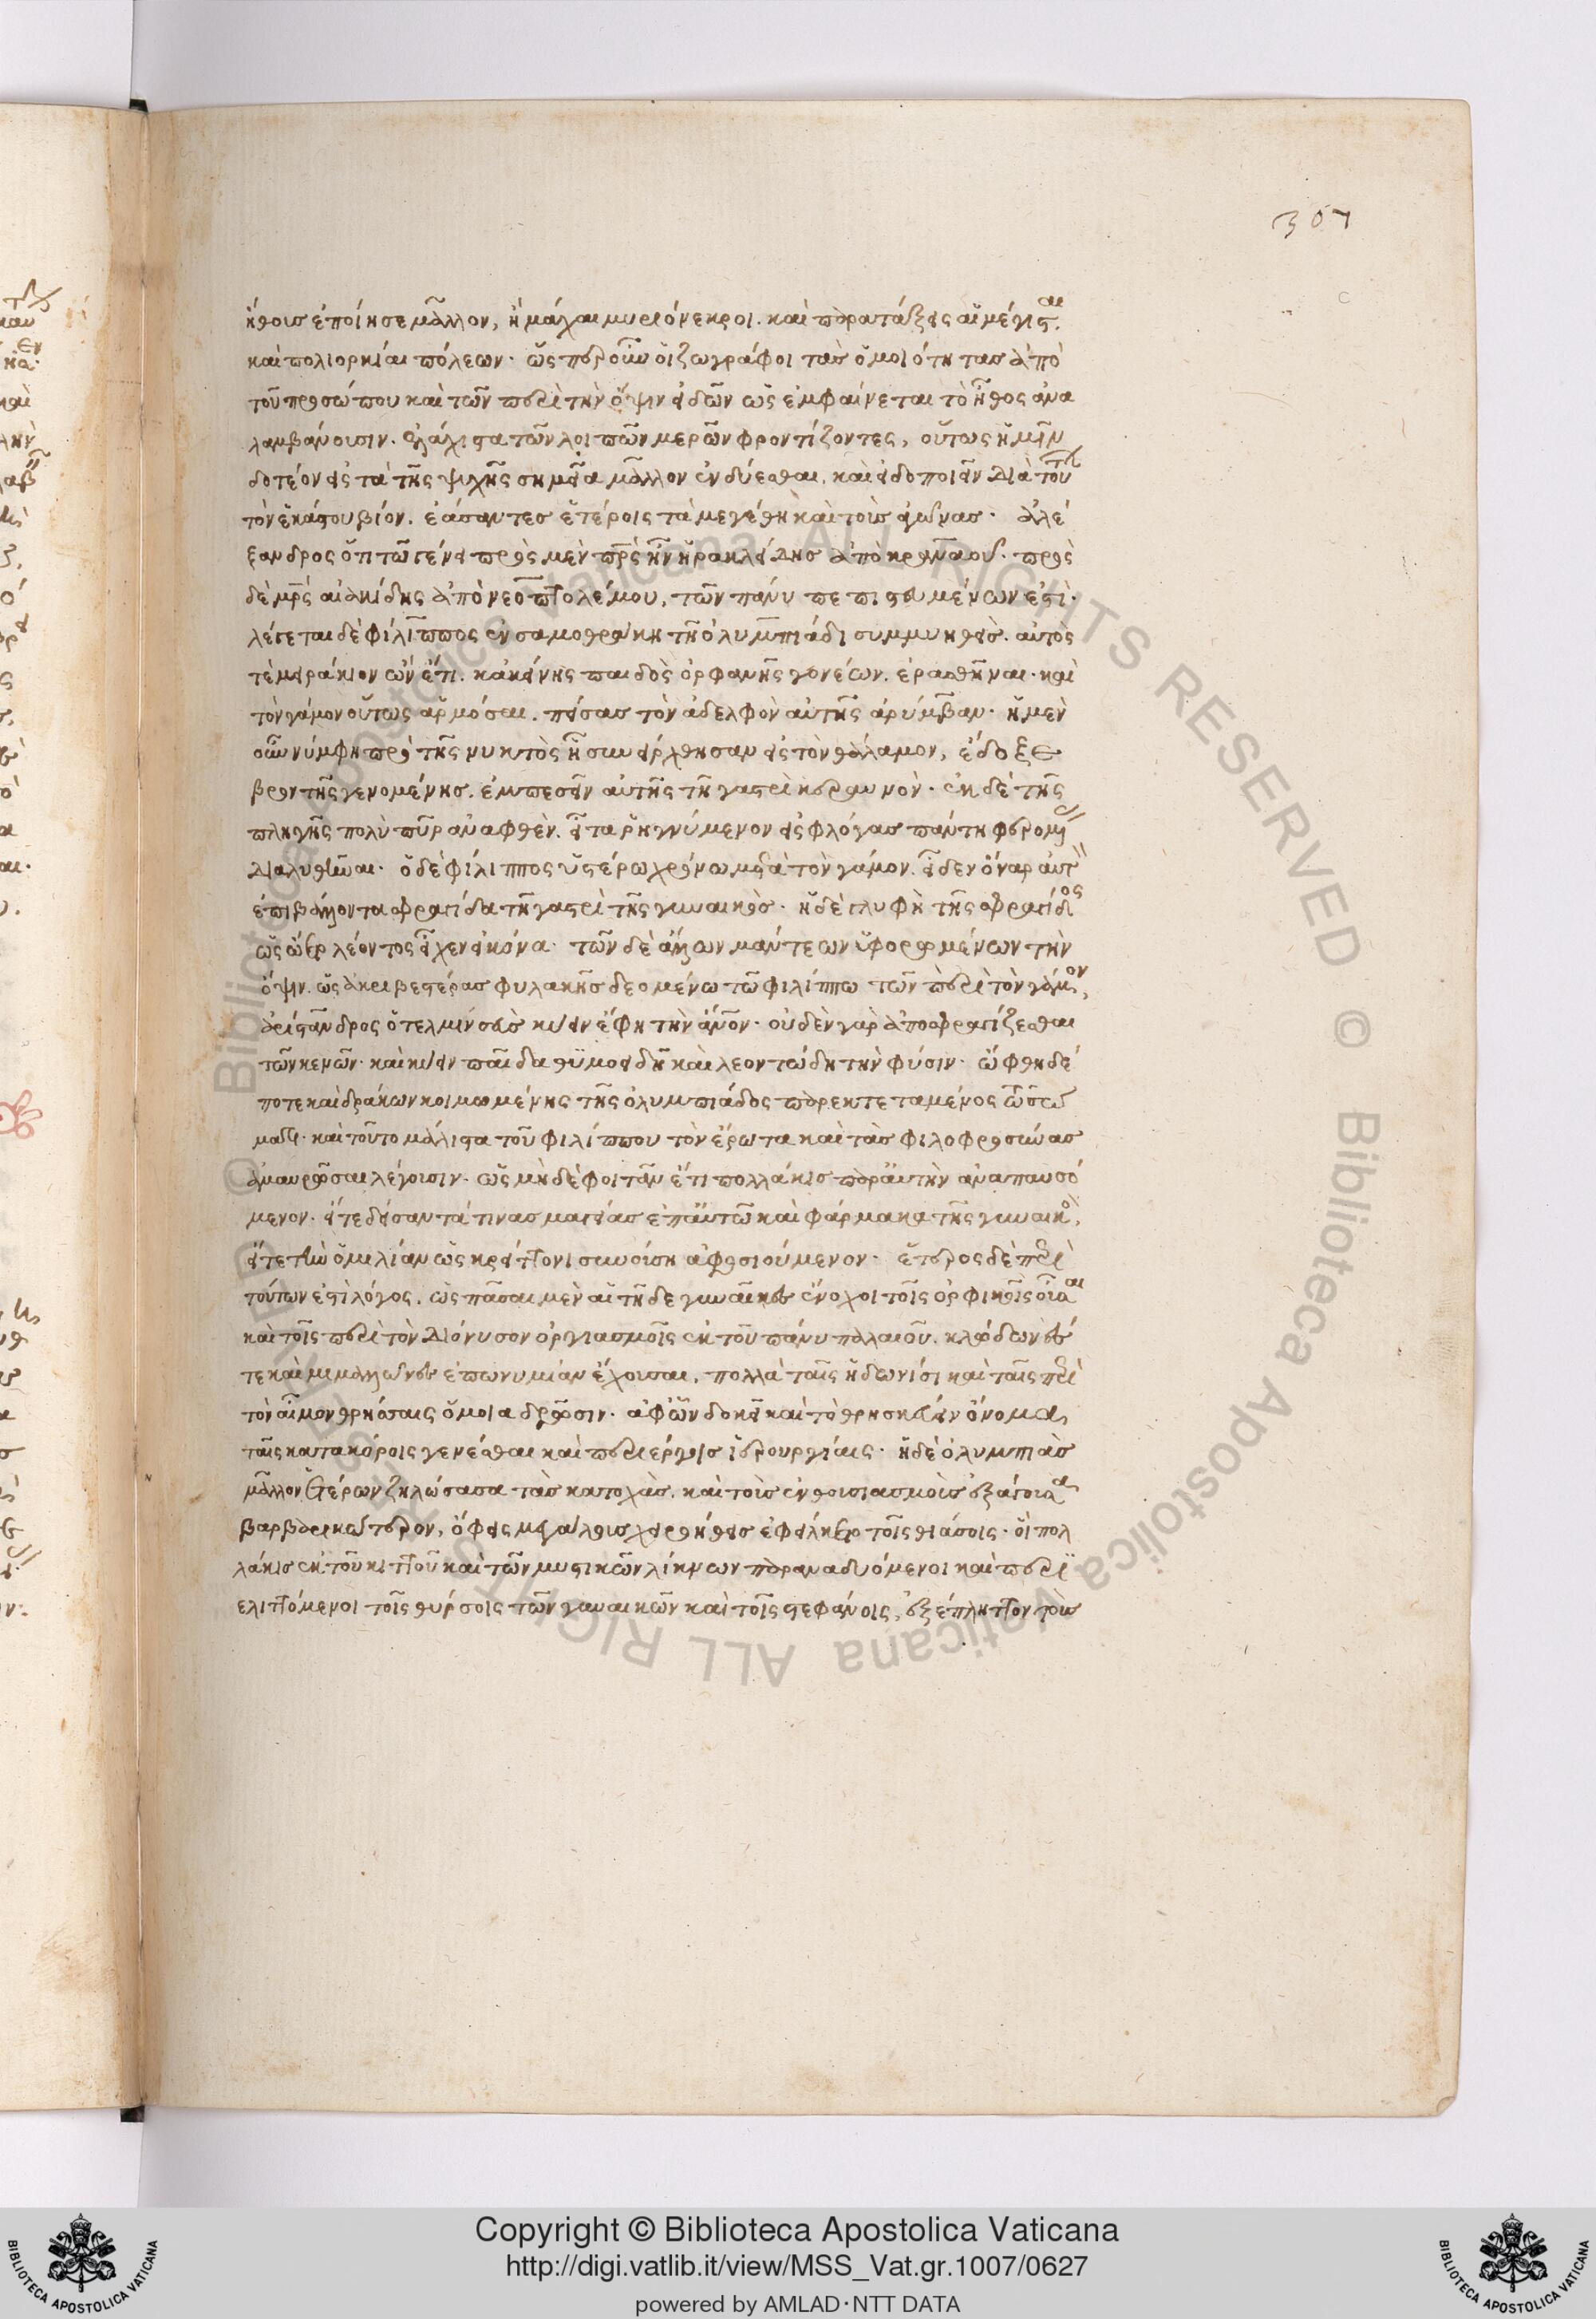 307
ἤθους ἐποίησε μᾶλλον, ἢ μάχαι μυριόνεκροι. καὶ παρατάξεις αἱ μέγισται.
καὶ πολιορκίαι πόλεων· ὥσπερ οὖν οἱ ζωγράφοι τὰς ὁμοιότητας ἀπὸ
τοῦ προσώπου καὶ τῶν περὶ τὴν ὄψιν εἰδῶν ὡς ἐμφαίνεται τὸ ἦθος ἀνα
λαμβάνουσιν. ἐλάχιστα τῶν λοιπῶν μερῶν φροντίζοντες, οὕτως ἡμῖν
δοτέον εἰς τὰ τῆς ψυχῆς σημεῖα μᾶλλον ἐνδύεσθαι. καὶ εἰδοποιεῖν διὰ τούτων
τὸν ἑκάστου βίον. ἐάσαντες ἑτέροις τὰ μεγέθη καὶ τοὺς ἀγῶνας· ἀλέ
ξανδρος ὅτι τῶ γένει πρὸς μὲν πρς ἦν ἡρακλείδης ἀπὸ καράνου. πρὸς
δὲ μρς αἰακίδης ἀπὸ νεοπτολέμου, τῶν πάνυ πεπιστευμένων ἐστί·
λέγεται δὲ φίλιππος ἐν σαμοθράκη τῆ ὀλυμπιάδι συμμυηθεὶς. αὐτὸς
τὲ μειράκιον ὢν ἔτι. κἀκείνης παιδὸς ὀρφανῆς γονέων. ἐρασθῆναι· καὶ
τὸν γάμον οὕτως ἁρμόσαι. πείσας τὸν ἀδελφὸν αὐτῆς ἀρύμβαν· ἡ μὲν
οὖν νύμφη πρὸ τῆς νυκτὸς ἧ συνείρχθησαν εἰς τὸν θάλαμον, ἔδοξε
βροντῆς γενομένης. ἐμπεσεῖν αὐτῆς τῆ γαστρὶ κεραυνὸν· ἐκ δὲ τῆς
πληγῆς πολὺ πῦρ ἀναφθὲν. εἶτα ῥηγνύμενον εἰς φλόγας πάντη φερομένας
διαλυθῆναι· ὁ δὲ φίλιππος ὑστέρω χρόνω μετὰ τὸν γάμον. εἶδεν ὄναρ αὑτὸν
ἐπιβάλλοντα σφραγίδα τῆ γαστρὶ τῆς γυναικὸς· ἡ δὲ γλυφὴ τῆς σφραγίδος
ὡς ὤετο λέοντος εἶχεν εἰκόνα· τῶν δὲ ἄλλων μάντεων ὑφορωμένων τὴν
ὄψιν. ὡς ἀκριβεστέρας φυλακῆς δεομένω τῶ φιλίππω τῶν περὶ τὸν γάμον,
ἀρίστανδρος ὁ τελμισεὺς κύειν ἔφη τὴν ἄνον· οὐδὲν γὰρ ἀποσφραγίζεσθαι
τῶν κενῶν· καὶ κύειν παῖδα θυμοειδῆ καὶ λεοντώδη τὴν φύσιν· ὤφθη δέ
ποτε καὶ δράκων κοιμωμένης τῆς ὀλυμπιάδος παρεκτεταμένος τῶ σώ
ματι· καὶ τοῦτο μάλιστα τοῦ φιλίππου τὸν ἔρωτα καὶ τὰς φιλοφροσύνας
ἀμαυρῶσαι λέγουσιν· ὡς μὴ δὲ φοιτᾶν ἔτι πολλάκις παρ' αὐτὴν ἀναπαυσό
μενον· εἴτε δείσαντά τινας μαγείας ἐπ' αὐτῶ καὶ φάρμακα τῆς γυναικὸς,
εἴτε τὴν ὁμιλίαν ὡς κρείττονι συνούση ἀφοσιούμενον· ἕτερος δὲ περὶ
τούτων ἐστὶ λόγος. ὡς πᾶσαι μὲν αἱ τῆδε γυναῖκες ἔνοχοι τοῖς ὀρφικοῖς οὖσαι
καὶ τοῖς περὶ τὸν διόνυσον ὀργιασμοῖς ἐκ τοῦ πάνυ παλαιοῦ. κλώδωνές
τε καὶ μιμαλλόνες ἐπωνυμίαν ἔχουσαι. πολλὰ ταῖς ἠδωνίσι καὶ ταῖς περὶ
τὸν αἷμον θρήσσαις ὅμοια δρῶσιν· ἀφ' ὧν δοκεῖ καὶ τὸ θρησκεύειν ὄνομα
ταῖς κατακόροις γενέσθαι καὶ περιέργοις ἱερουργίαις· ἡ δὲ ὀλυμπιὰς
μᾶλλον ἑτέρων ζηλώσασα τὰς κατοχὰς. καὶ τοὺς ἐνθουσιασμοὺς ἐξάγουσα
βαρβαρικώτερον, ὄφεις μεγάλους χειροήθεις ἐφείλκετο τοῖς θιάσοις· οἳ πολ
λάκις ἐκ τοῦ κιττοῦ καὶ τῶν μυστικῶν λίκνων παραναδυόμενοι καὶ περι
ελιττόμενοι τοῖς θύρσοις τῶν γυναικῶν καὶ τοῖς στεφάνοις, ἐξέπληττον τοὺς
Copyright © Biblioteca Apostolica Vaticana
http://digi.vatlib.it/view/MSS_Vat.gr.1007/0627
powered by AMLAD·NTT DATA